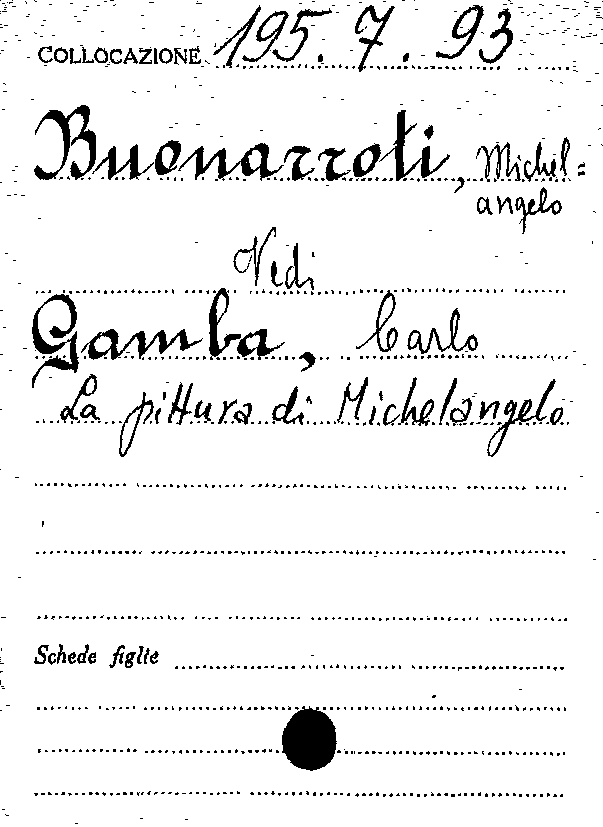 COLLOCAZIONE 195.7.93
Buonarroti, Michel=
angelo
Vedi
Gamba, Carlo
La pittura di Michelangelo
Schede figlie